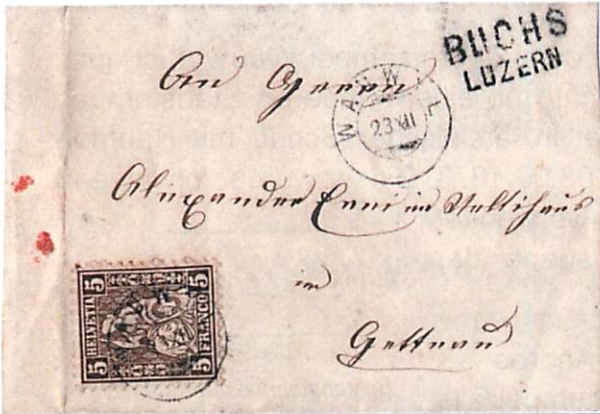 BUCHS
LUZERN
WAUWIL
23 XII
An Herrn
Alexander Erni im Stettihaus
in
Gettnau
5 5
HELVETIA FRANCO
5 5